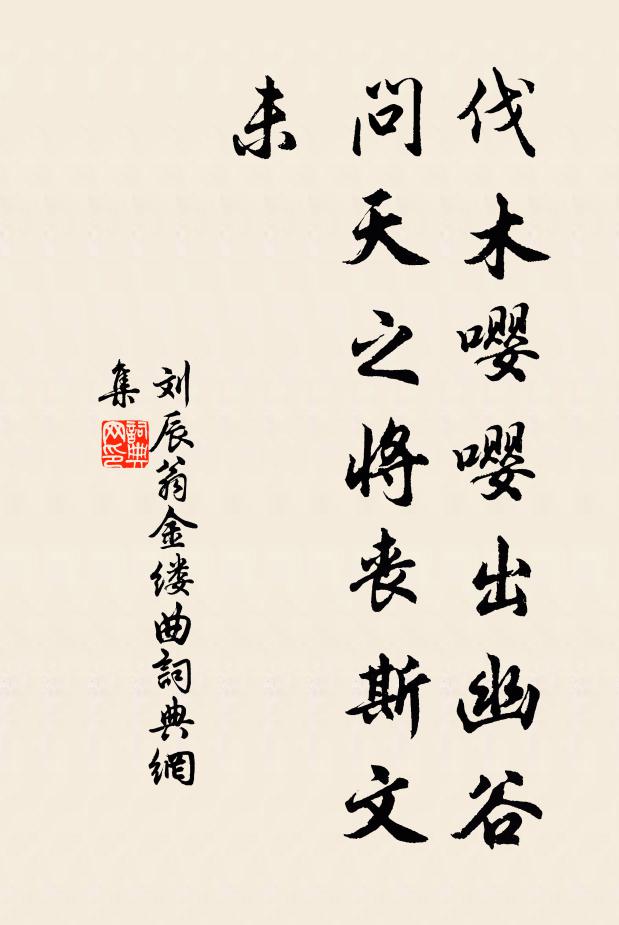 伐木嘤嘤出幽谷
问天之将丧斯文
未
刘辰翁金缕曲詞典網
集
詞典
网印